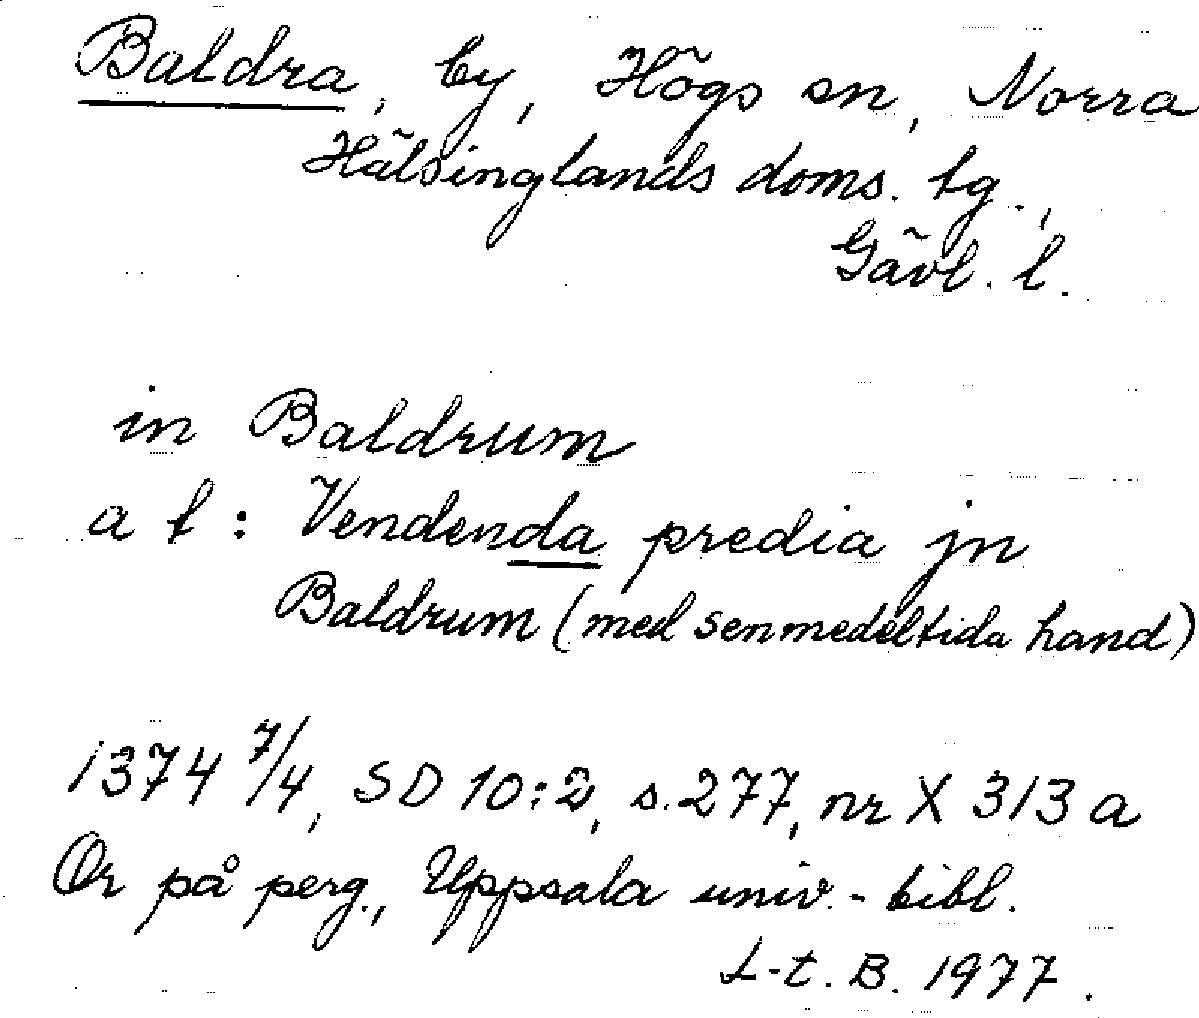 Baldra, by, Högs sn, Norra
Hälsinglands doms. tg.,
Gävl. l.
in Baldrum
a t: Vendenda predia jn
Baldrum (med senmedeltida hand)
1374 7/4, SD 10:2, s. 277, nr X 313 a
Or på perg., Uppsala univ.-bibl.
L-t. B. 1977.